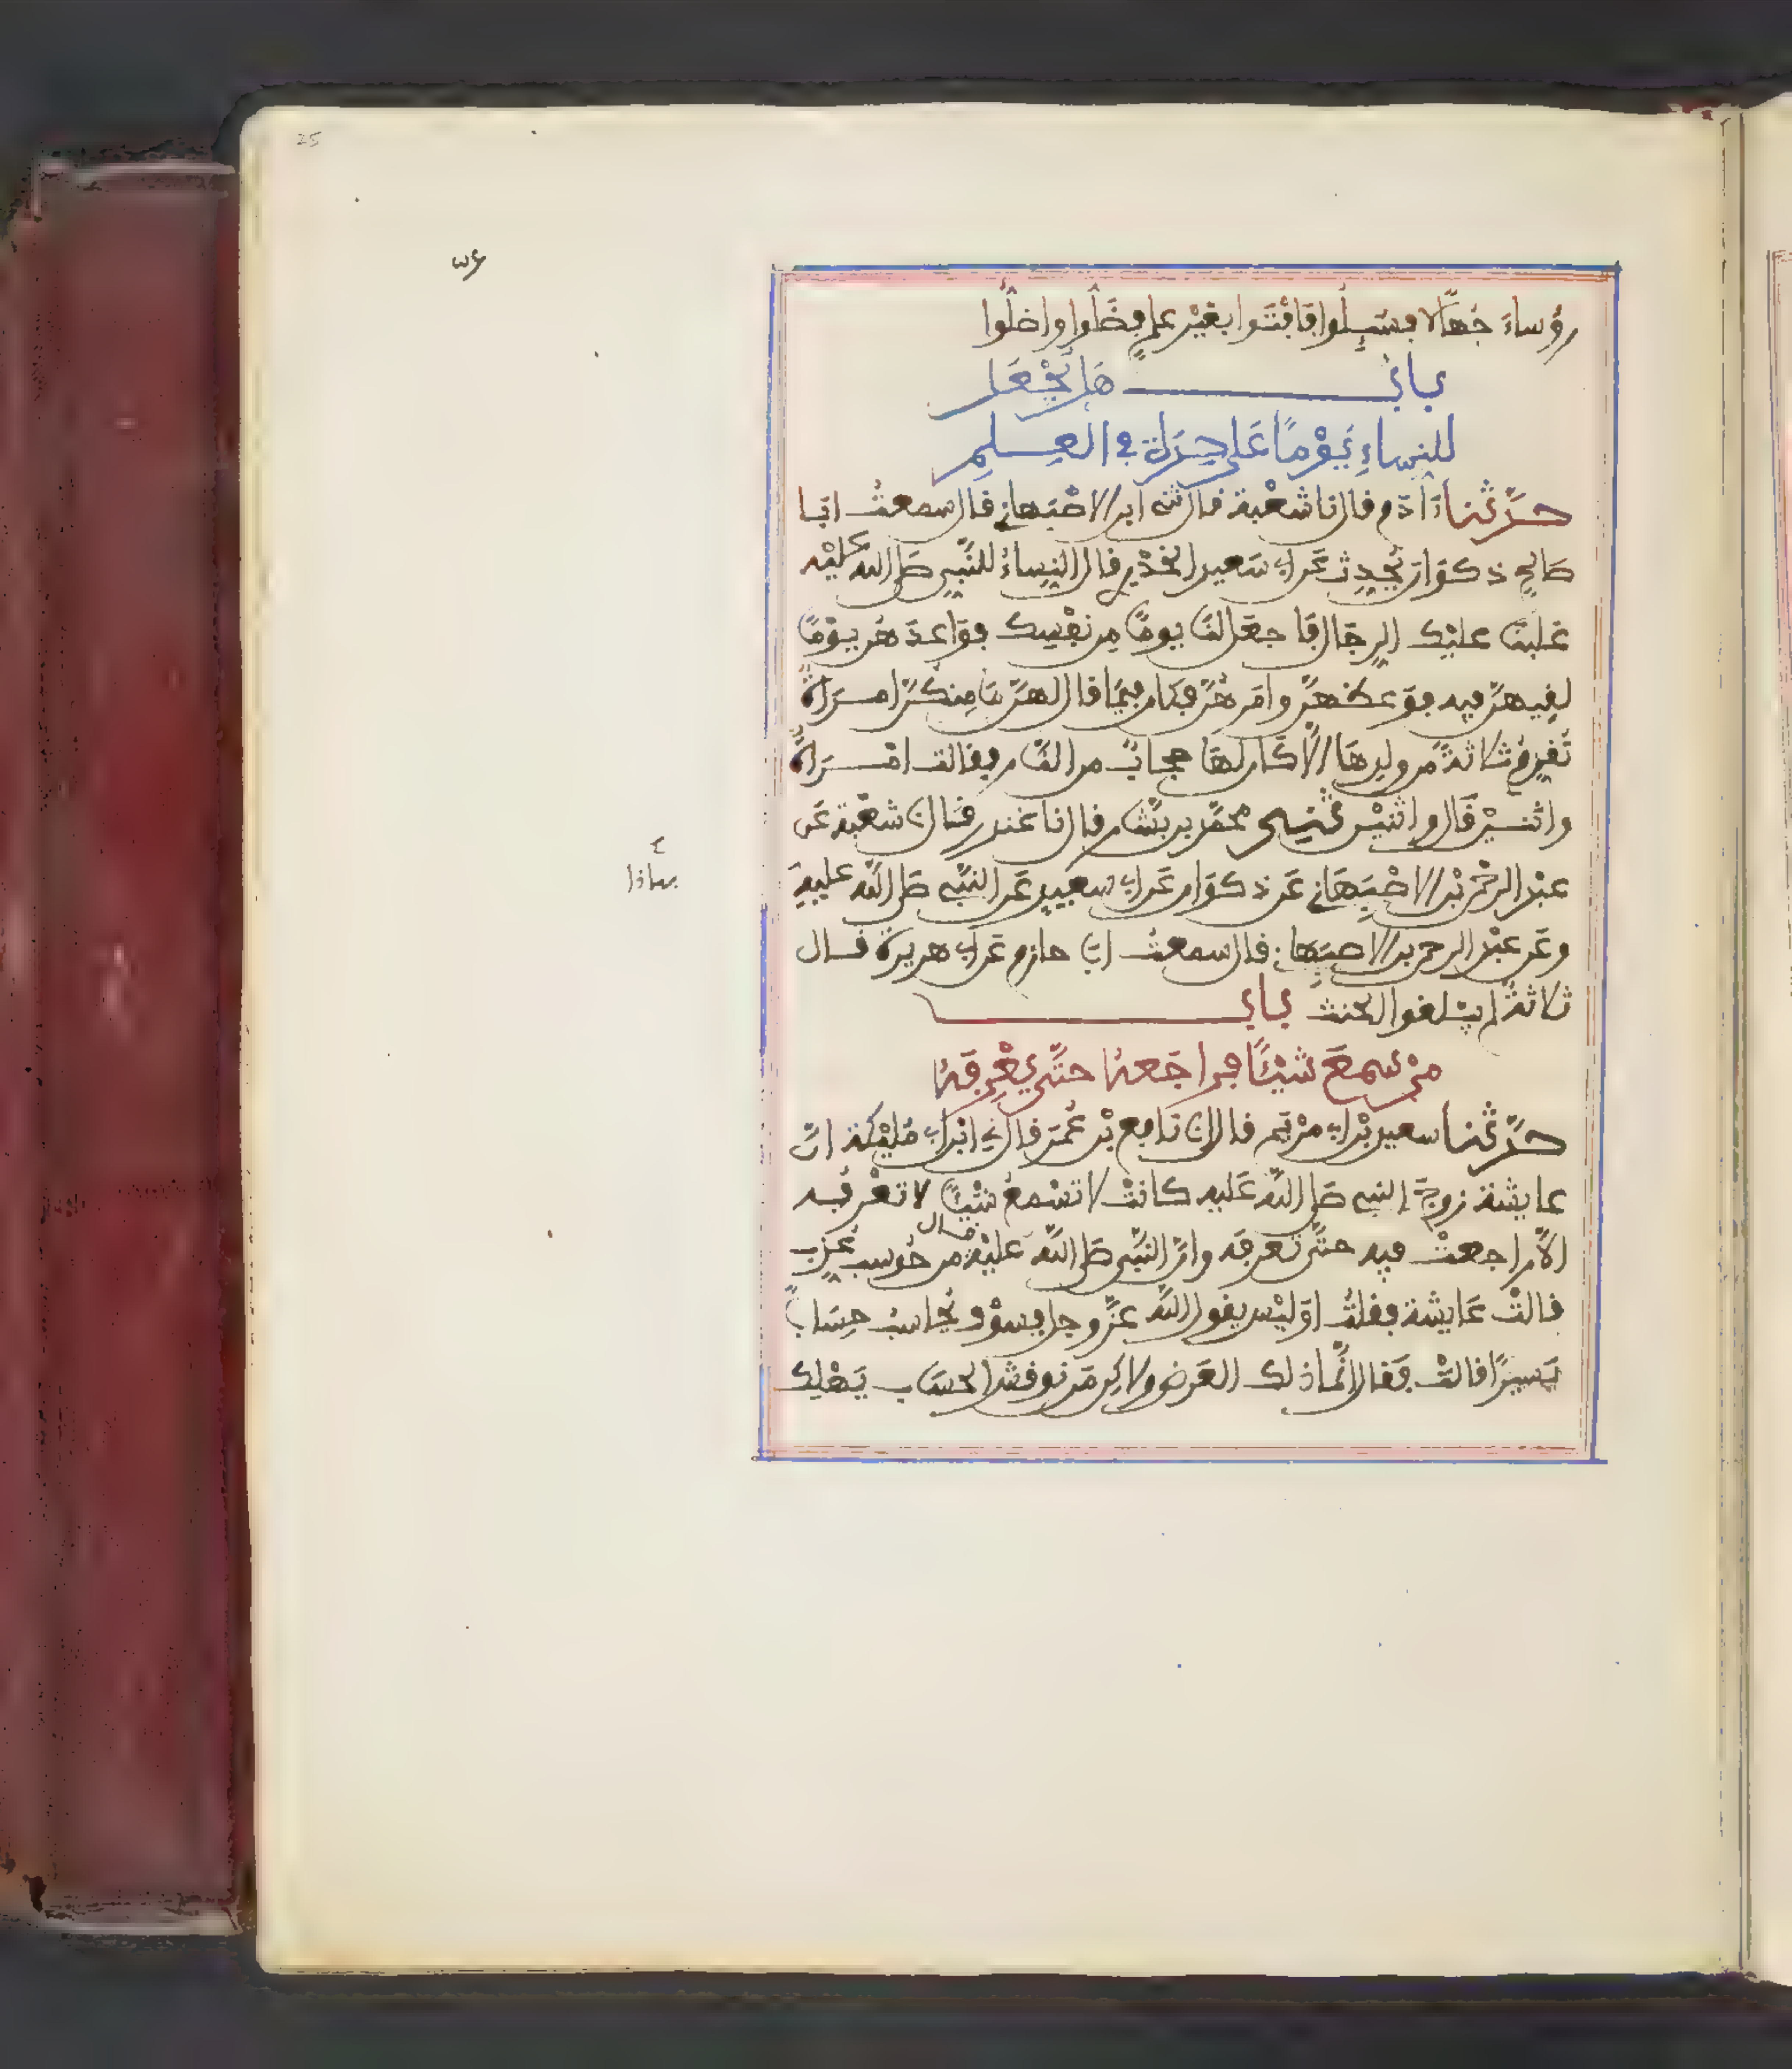 25
رؤساءَ جُهّالا فسُيِلُوا فَافْتَوا بغَيْر علمٍ فضَلّوا واضَلّوا
بابٌ هَل يُجْعَل
للنِساءِ يَوْمًا عَلى حِدَةٍ في العِلمِ
حدّثنا ءَادَم قال نا شعْبة قال ني ابن الاصْبَهاني قال سمعتُ ابَا
صَالِحٍ ذكوَان يُحدِث عَن ابي سَعيد الخدْرِي قال النِساءُ للنَّبِي صَلى الله عَلَيْه
غلبَنا علَيْك الرِجَال فَاجعَل لنَا يومًا مِن نفْسِك فوَاعدَهُن يوْمًا
لقِيهنّ فيه فوَعظهنّ وامَرهُنّ فكان فيمَا قال لهنّ مَا منكنّ امرَاةٌ
تُقدِم ثلاثةً من ولدِهَا الّا كان لهَا حجابٌ من النَّار فقالت امْرَاةٌ
واثنَيْن قَال واثنيْن حدثني محمّد بن بشّار قال نا غندر قال نا شعْبَة عَن
عبْد الرحمٰن بْن الاصْبَهَاني عَن ذكوَان عَن ابي سعِيد عَن النَّبي صَلى الله عليهِ
وعَن عبْد الرحمن بن الاصبَهاني قال سمعتُ ابَا حازم عَن ابي هريرة قال
ثلاثةً لم يبلغوا الحنث بابٌ
مَنْ سَمِعَ شَيْئًا فراجَعهُ حتَّى يَعْرِفَهُ
حدّثنا سعيد بْن ابي مرْيَم قال انا نافع بْن عُمَرَ قال ني ابْن ابي مُلَيْكة انّ
عايشة زوجَ النبي صَلى الله عَليه كانتْ لا تسْمعُ شَيْئًا لا تعْرفُه
الّا راجعتْ فيه حتَّى تعْرفَه وانّ النَّبي صَلى الله عليْه قال من حُوسب عُذِّب
قالتْ عَايشة فقلتُ اوَليْس يقول الله عزّ وجل فسوْف يُحاسبُ حِسَابًا
يَسيرًا قالتْ فَقال انَّما ذلك العَرض ولاكن مَن نوقش الحسَاب يَهْلِك